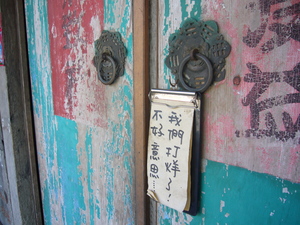 我們打烊了！
不好意思…